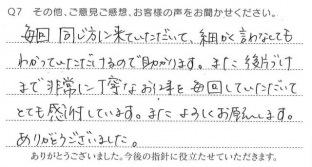 Q7 その他、ご意見ご感想、お客様の声をお聞かせください。
毎回 同じ方に来ていただいて、細かく言わなくても
わかっていただけるので助かります。また 後片づけ
まで非常に丁寧なお仕事を毎回していただいて
とても感謝しています。また よろしくお願いします。
ありがとうございました。
ありがとうございました。今後の指針に役立たせていただきます。